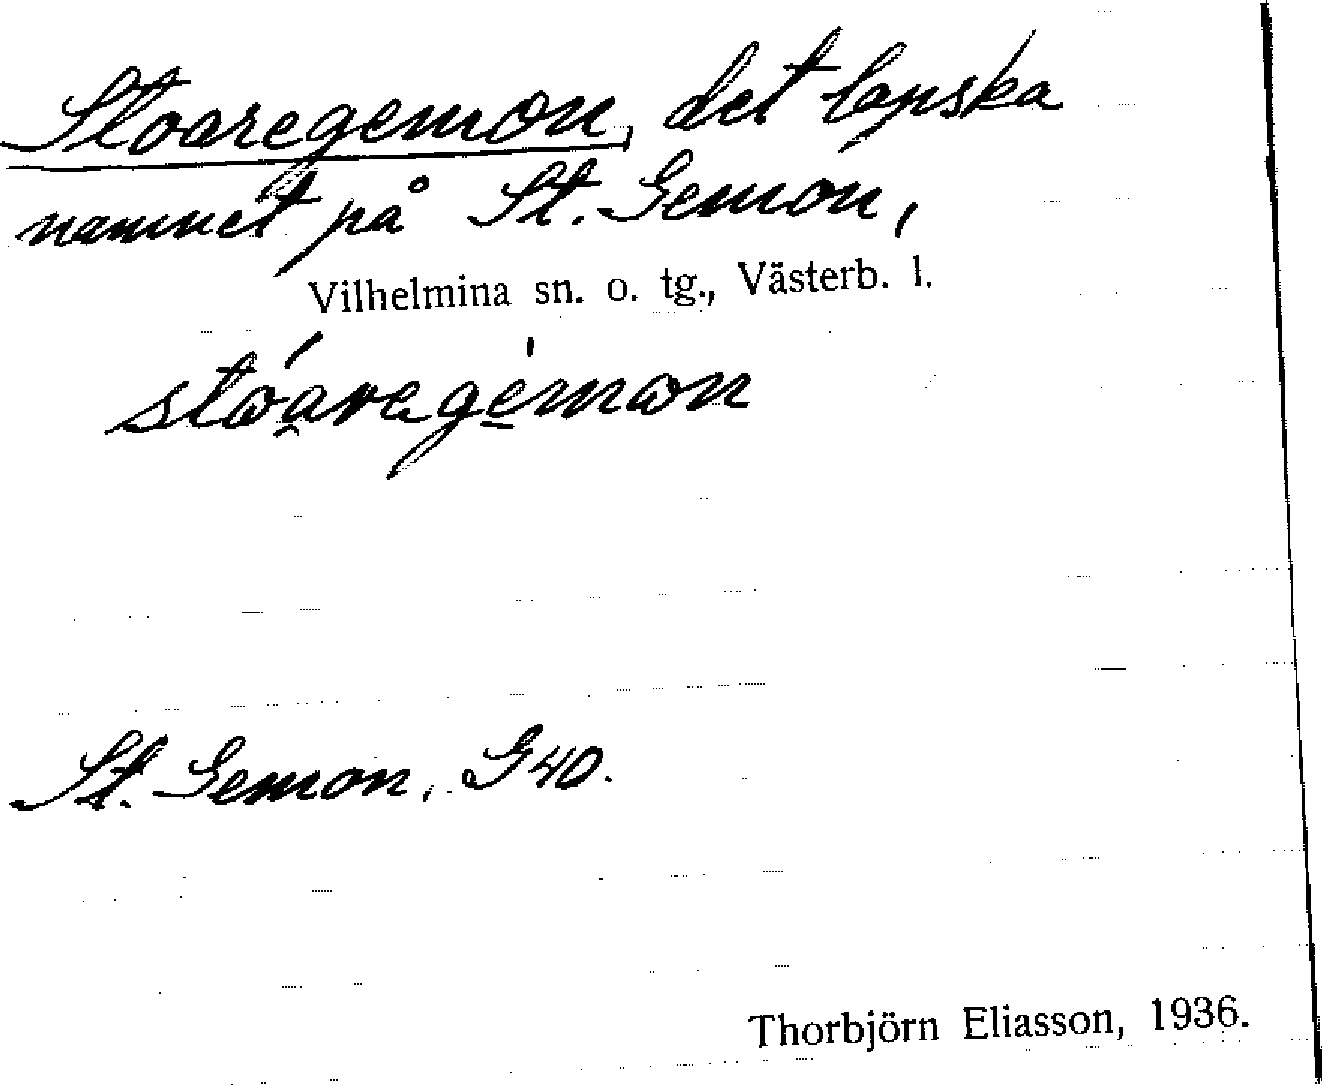 Stoaregemon, det lapska
namnet på St. Gemon,
Vilhelmina sn. o. tg., Västerb. l.
stoaregemon
St. Gemon, G40.
Thorbjörn Eliasson, 1936.